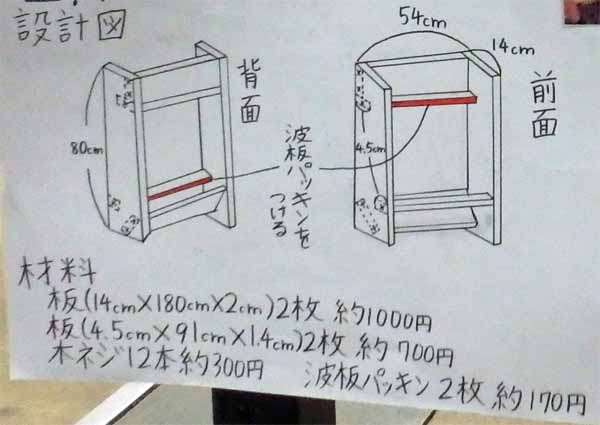 設計図
54cm
14cm
背面
前面
80cm
4.5cm
波板パッキンを
つける
材料
板(14cm×180cm×2cm)2枚 約1000円
板(4.5cm×91cm×1.4cm)2枚 約700円
木ネジ12本約300円 波板パッキン2枚 約170円